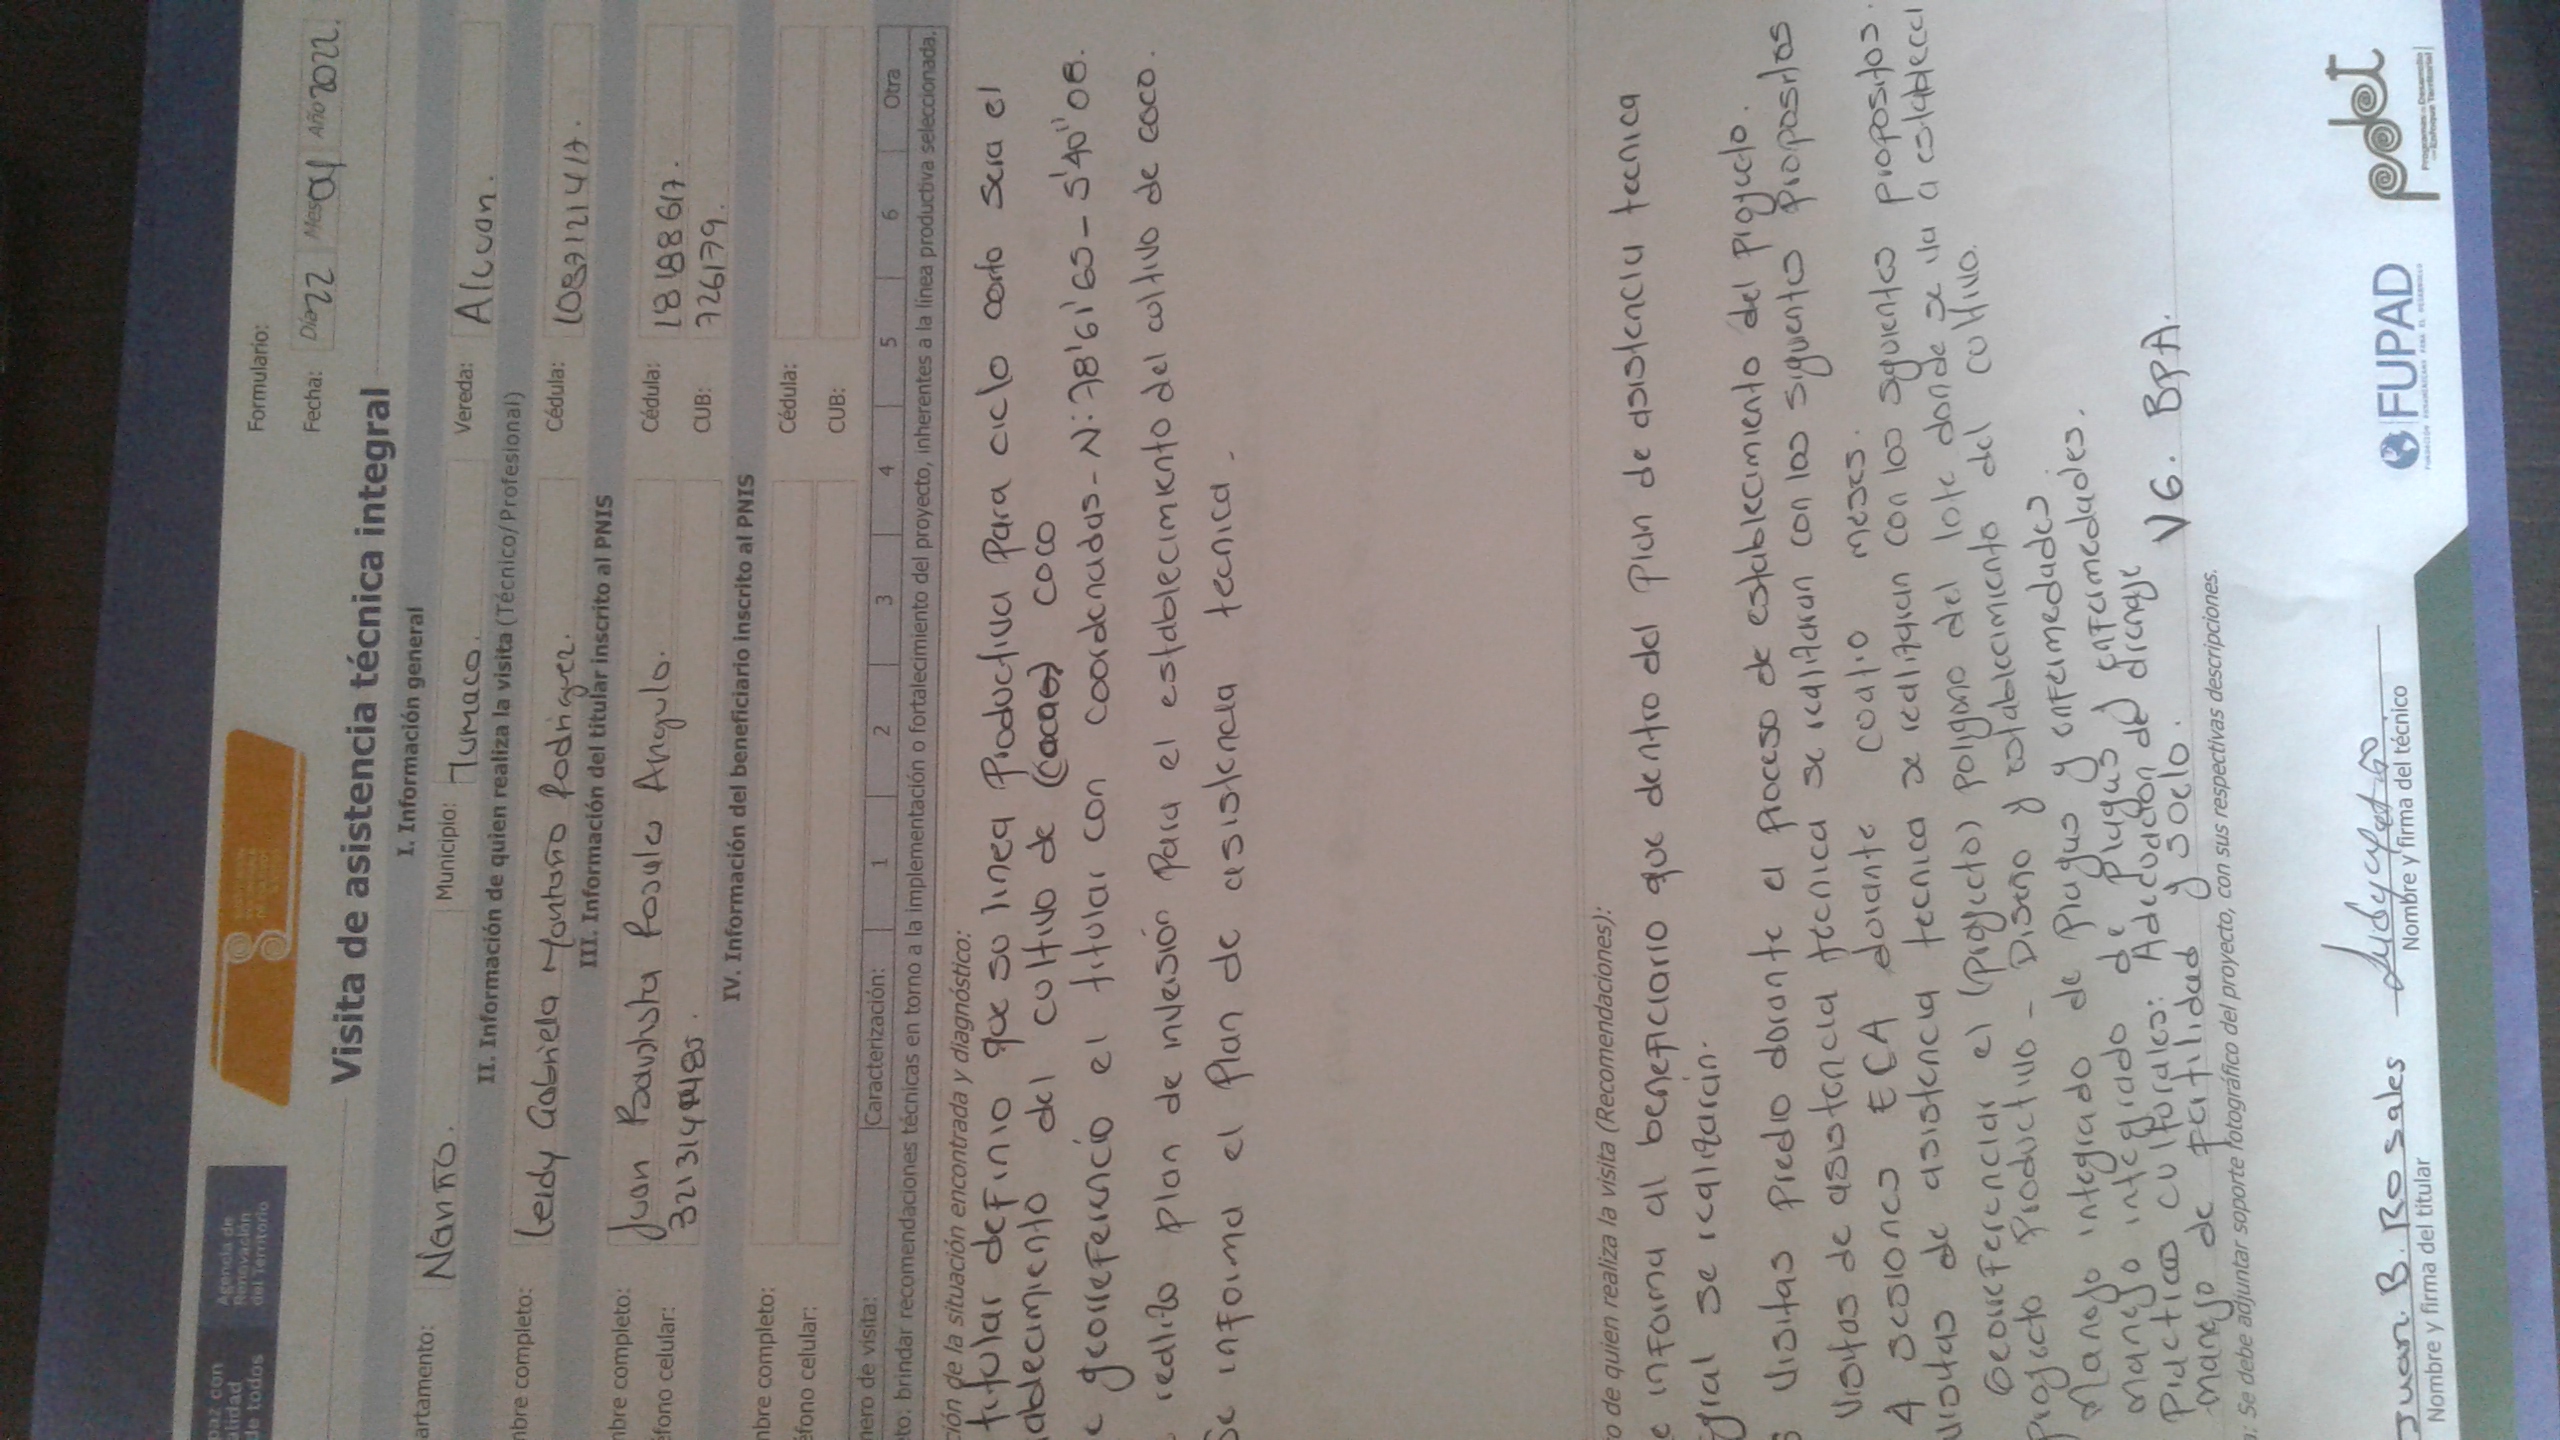 paz con
alidad
de todos
Agencia de
Renovación
del Territorio
Formulario:
Fecha: Día 22 Mes 04 Año 2022.
Visita de asistencia técnica integral
I. Información general
artamento: Nariño. Municipio: Tumaco. Vereda: Alcuan.
II. Información de quien realiza la visita (Técnico/Profesional)
nbre completo: Leidy Gabriela Montaño Rodriguez. Cédula: 1087121417.
III. Información del titular inscrito al PNIS
nbre completo: Juan Bautista Rosales Angulo. Cédula: 18188617.
éfono celular: CUB: 726179.
IV. Información del beneficiario inscrito al PNIS
nbre completo: Cédula:
éfono celular: CUB:
nero de visita: Caracterización: 1 2 3 4 5 6 Otra
eto: brindar recomendaciones técnicas en torno a la implementación o fortalecimiento del proyecto, inherentes a la línea productiva seleccionada.
ción de la situación encontrada y diagnóstico:
titular definio que su linea Productiva para ciclo corto sera el
ablecimiento del cultivo de (cacao) coco
e georreferencio el titular con coordenadas - N: 78'61'65 - 5'40''08.
realizo plan de inversión Para el establecimiento del cultivo de coco.
Se informa el Plan de asistencia tecnica.
o de quien realiza la visita (Recomendaciones):
e informa al beneficiario que dentro del Plan de asistencia tecnica
gral se realizaran.
visitas Predio durante el Proceso de establecimiento del proyecto.
visitas de asistencia tecnica se realizaran con los siguientes propositos
4 sesiones ECA durante cuatro meses.
visitas de asistencia tecnica se realizaran con los siguientes propositos.
Georreferenciar el (proyecto) poligono del lote donde se va a establecer
proyecto Productivo - Diseño y establecimiento del cultivo.
Manejo integrado de Plagas y enfermedades
Manejo integrado de Plagas y enfermedades.
Practicas culturales: Adecuación del drenaje
manejo de fertilidad y suelo. V6. BPA.
: Se debe adjuntar soporte fotográfico del proyecto, con sus respectivas descripciones.
Juan. B. Rosales
Nombre y firma del titular
Nombre y firma del técnico
FUPAD
FUNDACIÓN PANAMERICANA PARA EL DESARROLLO
pdet
Programas de Desarrollo
con Enfoque Territorial